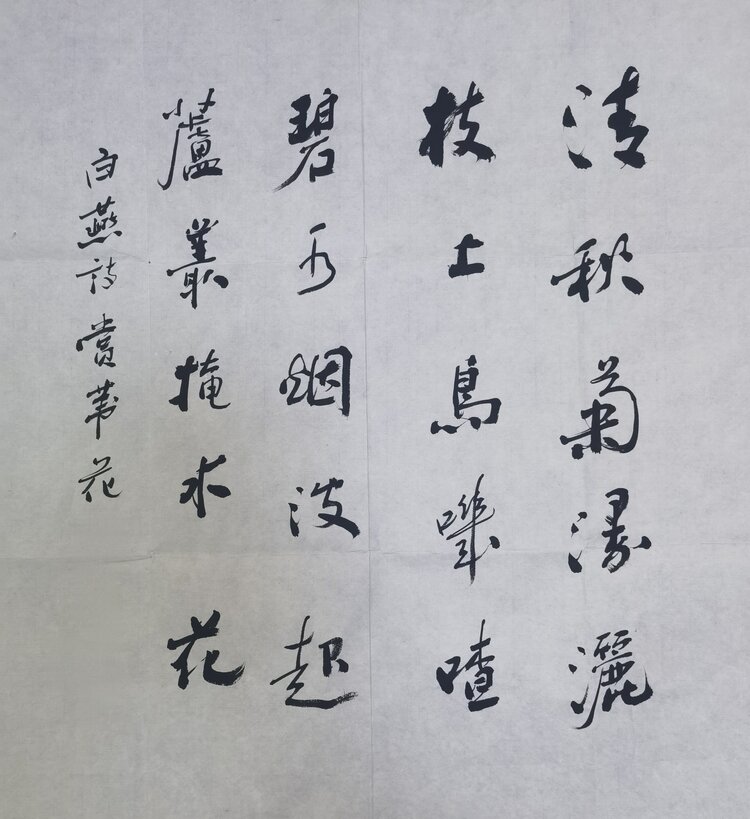 清秋菊灑
枝上鳥嘰喳
碧水烟波起
蘆叢掩水花
白燕詩賞葦花